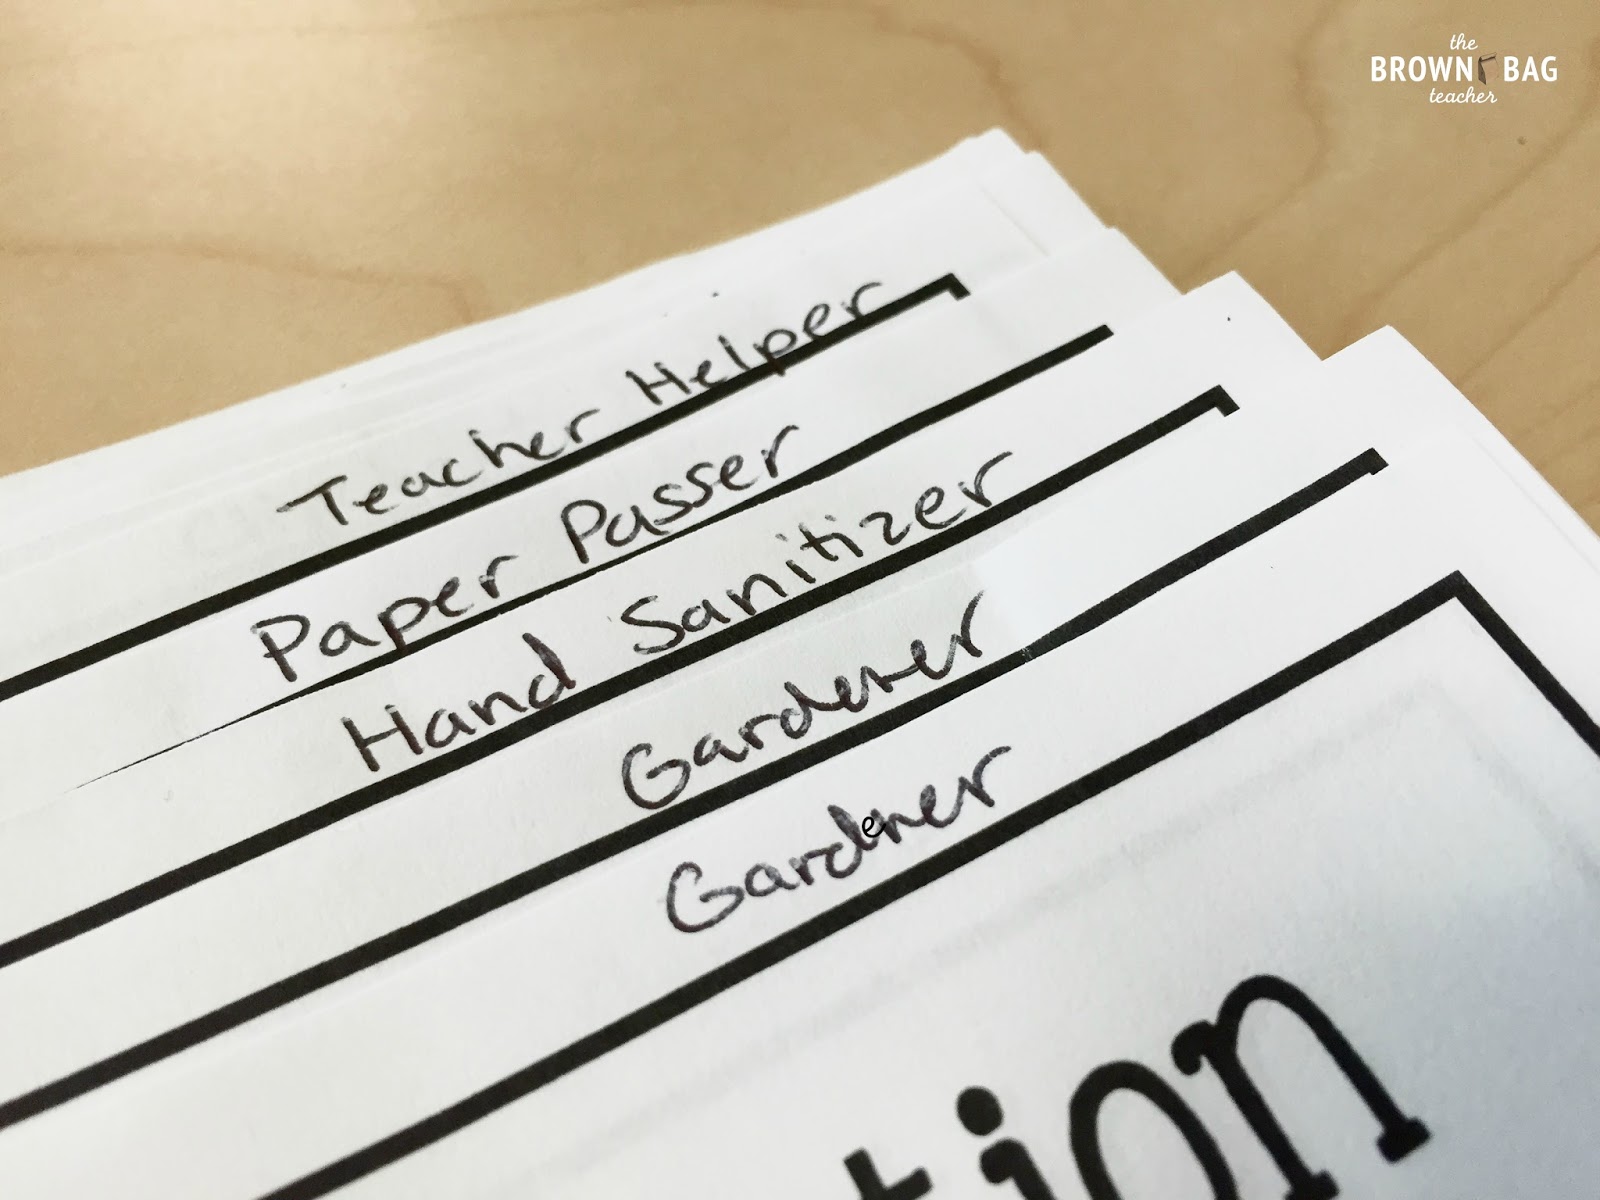 the
BROWN BAG
teacher
Teacher Helper
Paper Passer
Hand Sanitizer
Gardener
Gardener
tion